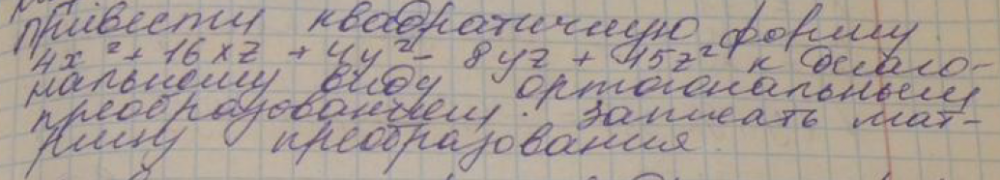 привести квадратичную форму
4x² + 16xz + 4y² - 8yz + 15z² к диаго-
нальному виду ортогональным
преобразованием. Записать мат-
рицу преобразования.